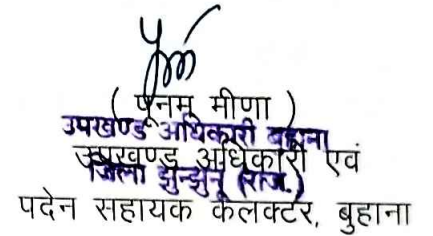 ( पूनम मीणा )
उपखण्ड अधिकारी बुहाना
उपखण्ड अधिकारी एवं
जिला झुन्झुनू (राज.)
पदेन सहायक कलक्टर, बुहाना